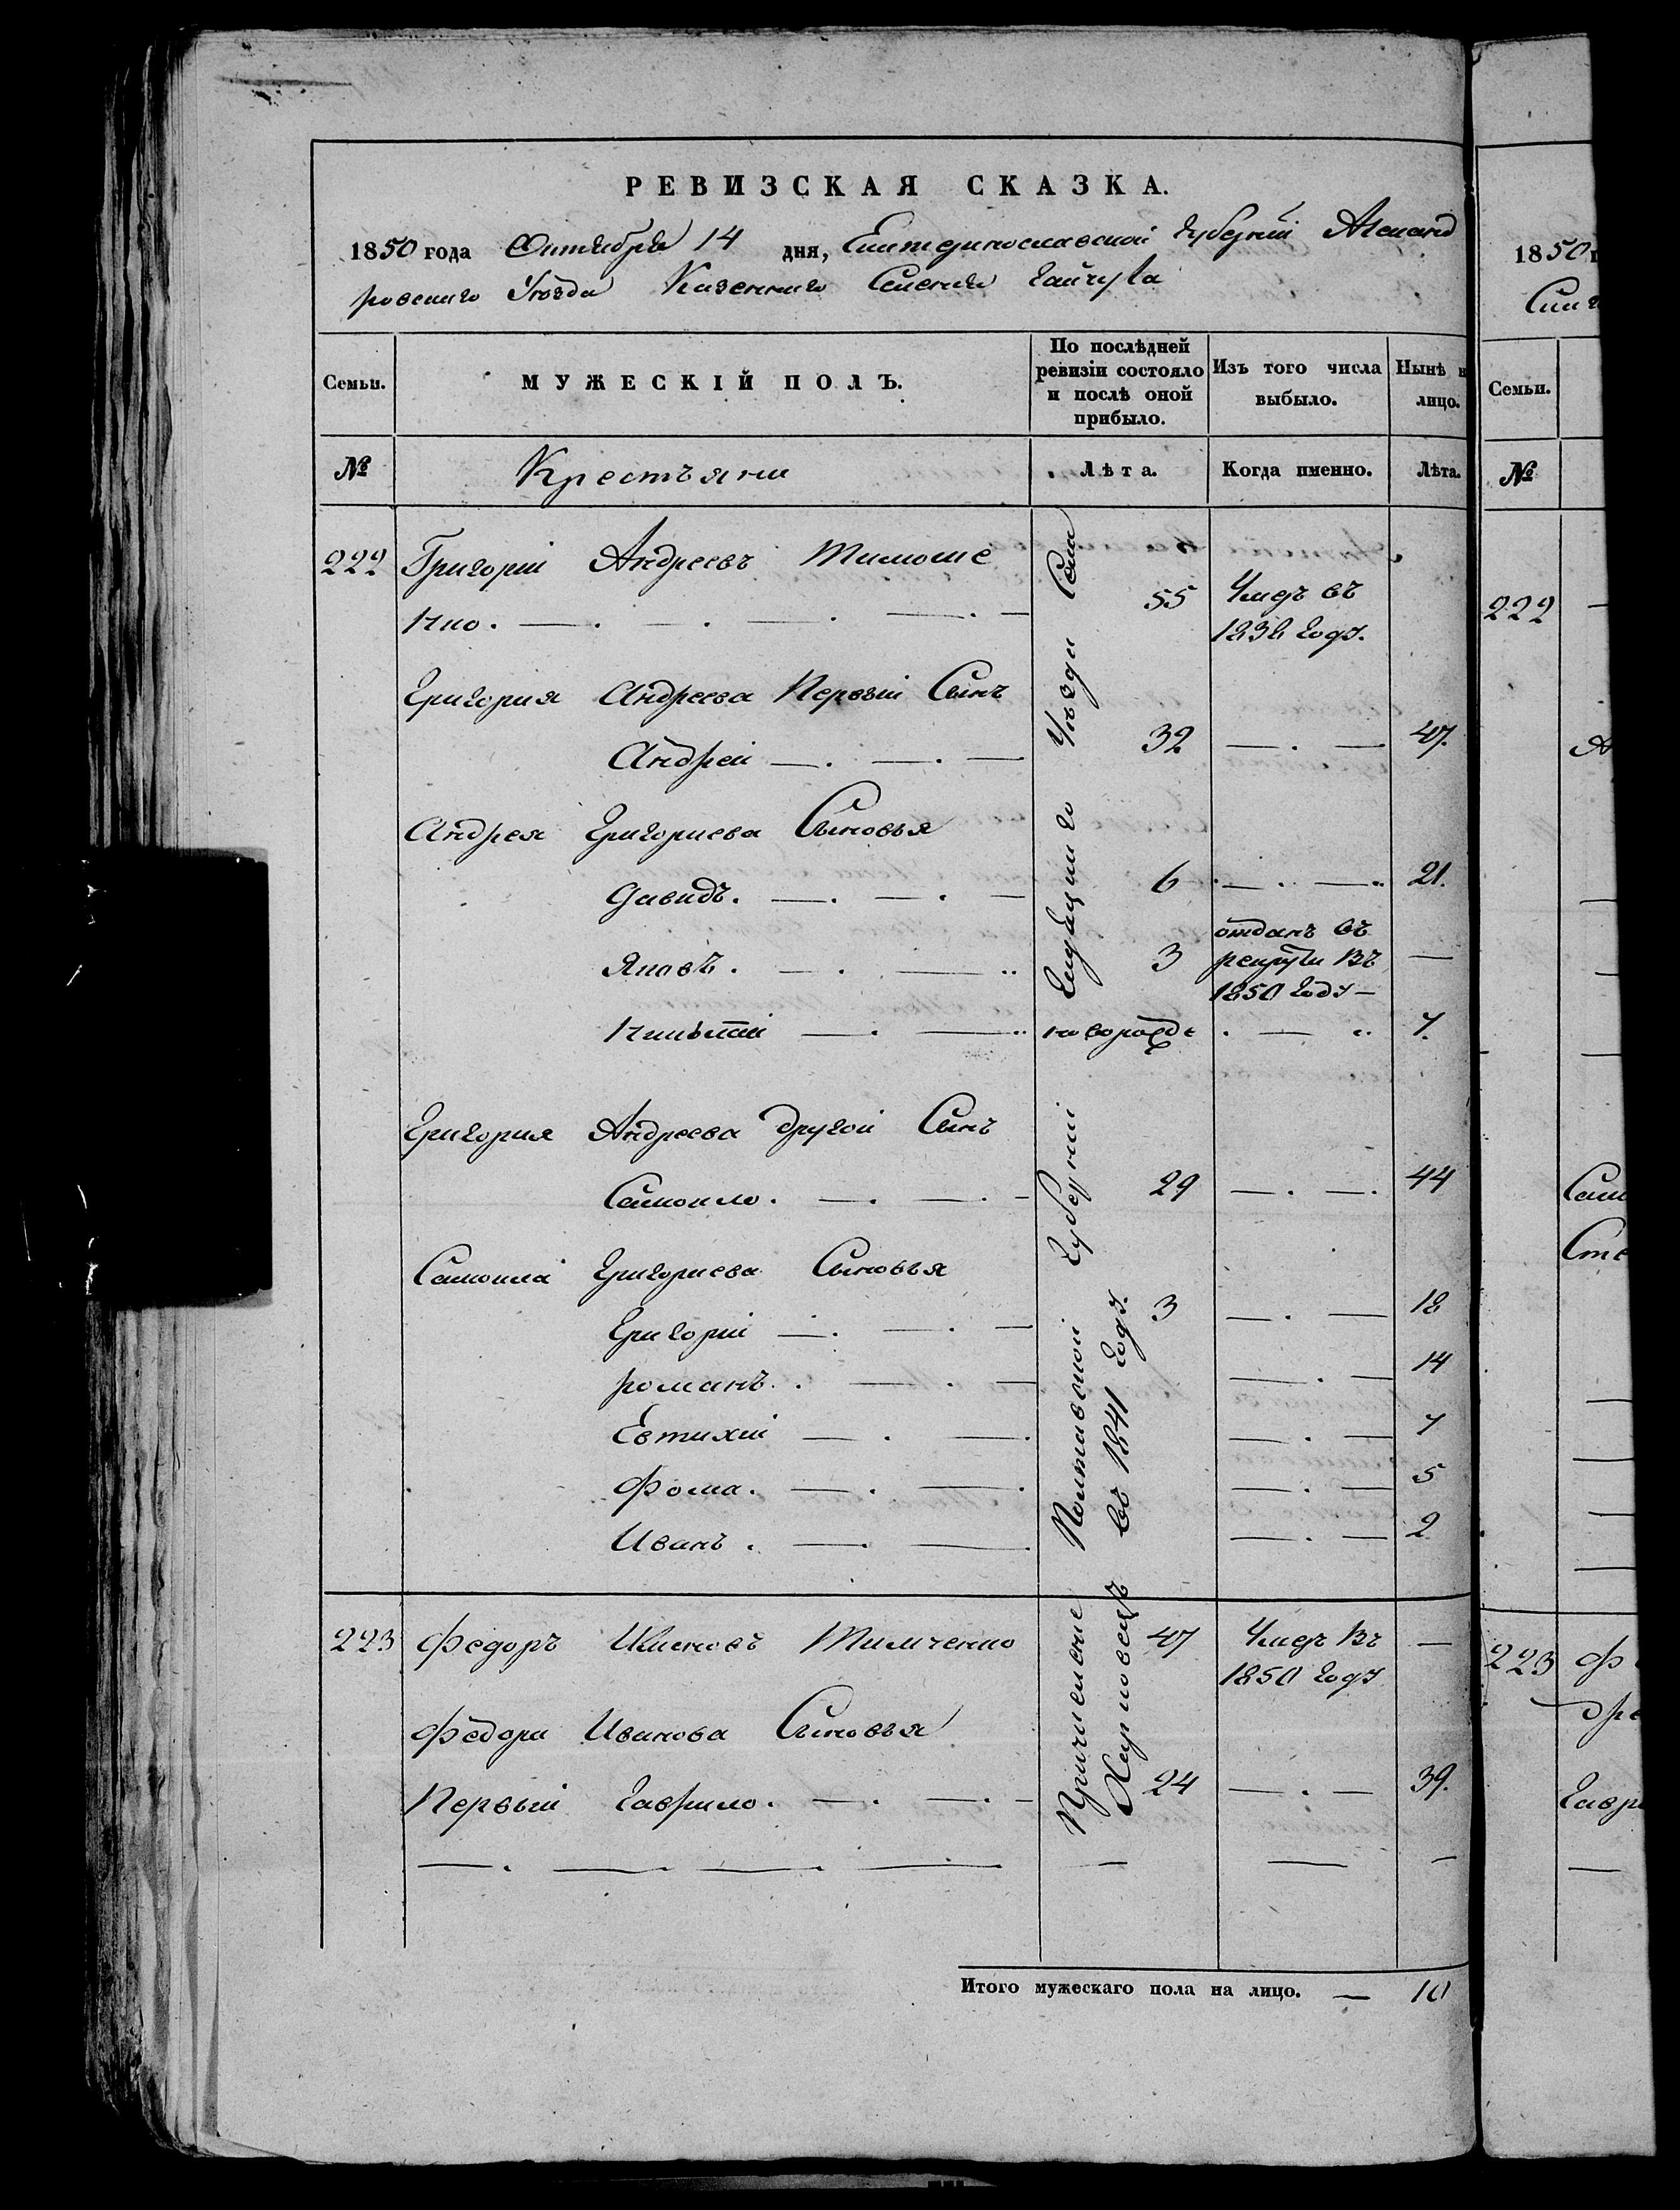 РЕВИЗСКАЯ СКАЗКА.
1850 года Октября 14 дня, Екатеринославской Губерніи Александ
ровскаго Уѣзда Казеннаго Селенія Гайчула
Семьи.
МУЖЕСКІЙ ПОЛЪ.
По послѣдней
ревизіи состояло
и послѣ оной
прибыло.
Изъ того числа
выбыло.
Нынѣ н
лицо.
№
Крестьяни
Лѣта.
Когда именно.
Лѣта.
222 Григорій Андреевъ Тимоше
нко. 55 Умеръ въ
1838 году.
Григорія Андреева Первый Сынъ
Андрей 32 47.
Андрея Григориева Сыновья
Давидъ. 6 21.
Яковъ. 3 отданъ въ
рекруты въ
1850 году
новорожде 7.
Григория Андреева другой Сынъ
Самоило. 29 44
Самоила Григориева Сыновья
Григорій 3 18
романъ. 14
Евтихій 7
Фома. 5
Иванъ. 2
223 Федоръ Ивановъ Тимченко 47 Умеръ въ
1850 году
Федора Иванова Сыновья
Первый Гаврило. 24 39.
Причислены Полтавской Губерніи Гадяцкаго Уѣзда Села
въ 1841 году.
Итого мужескаго пола на лицо. 10
1850
Семьи.
№
222
А
Само
Сте
223 Ф
Гавр